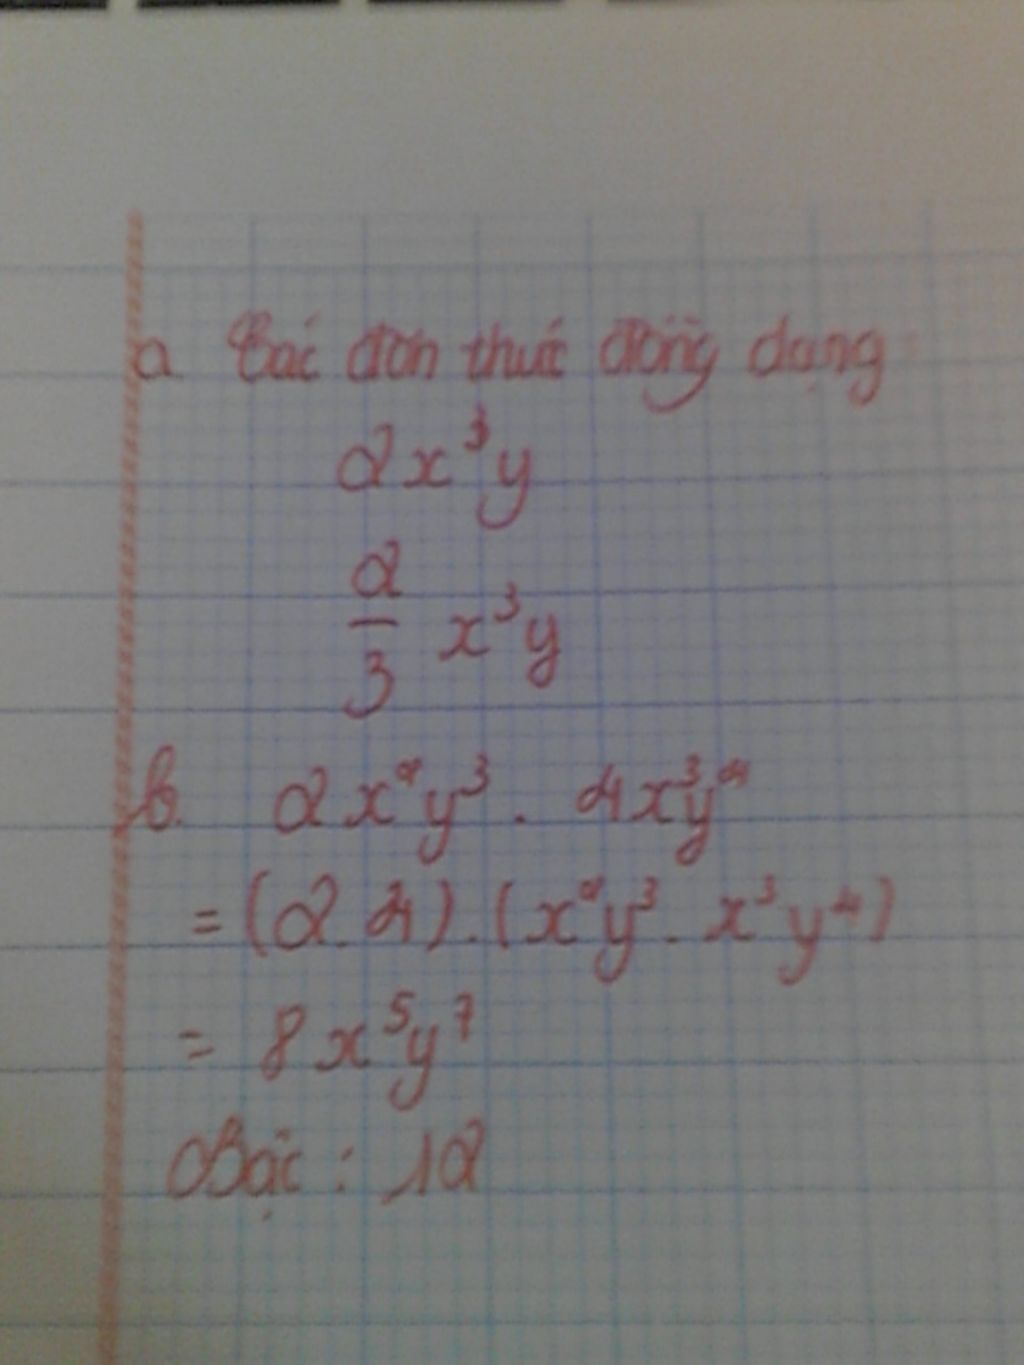 a. Các đơn thức đồng dạng:
2x³y
2/3 x³y
b. 2x²y³ . 4x³y⁴
= (2.4).(x²y³ . x³y⁴)
= 8x⁵y⁷
Bậc : 12